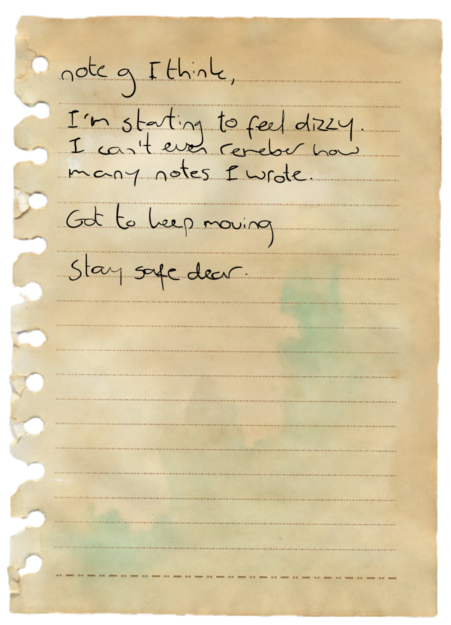 note 9 I think,
I'm starting to feel dizzy.
I can't even remeber how
many notes I wrote.
Got to keep moving
Stay safe dear.